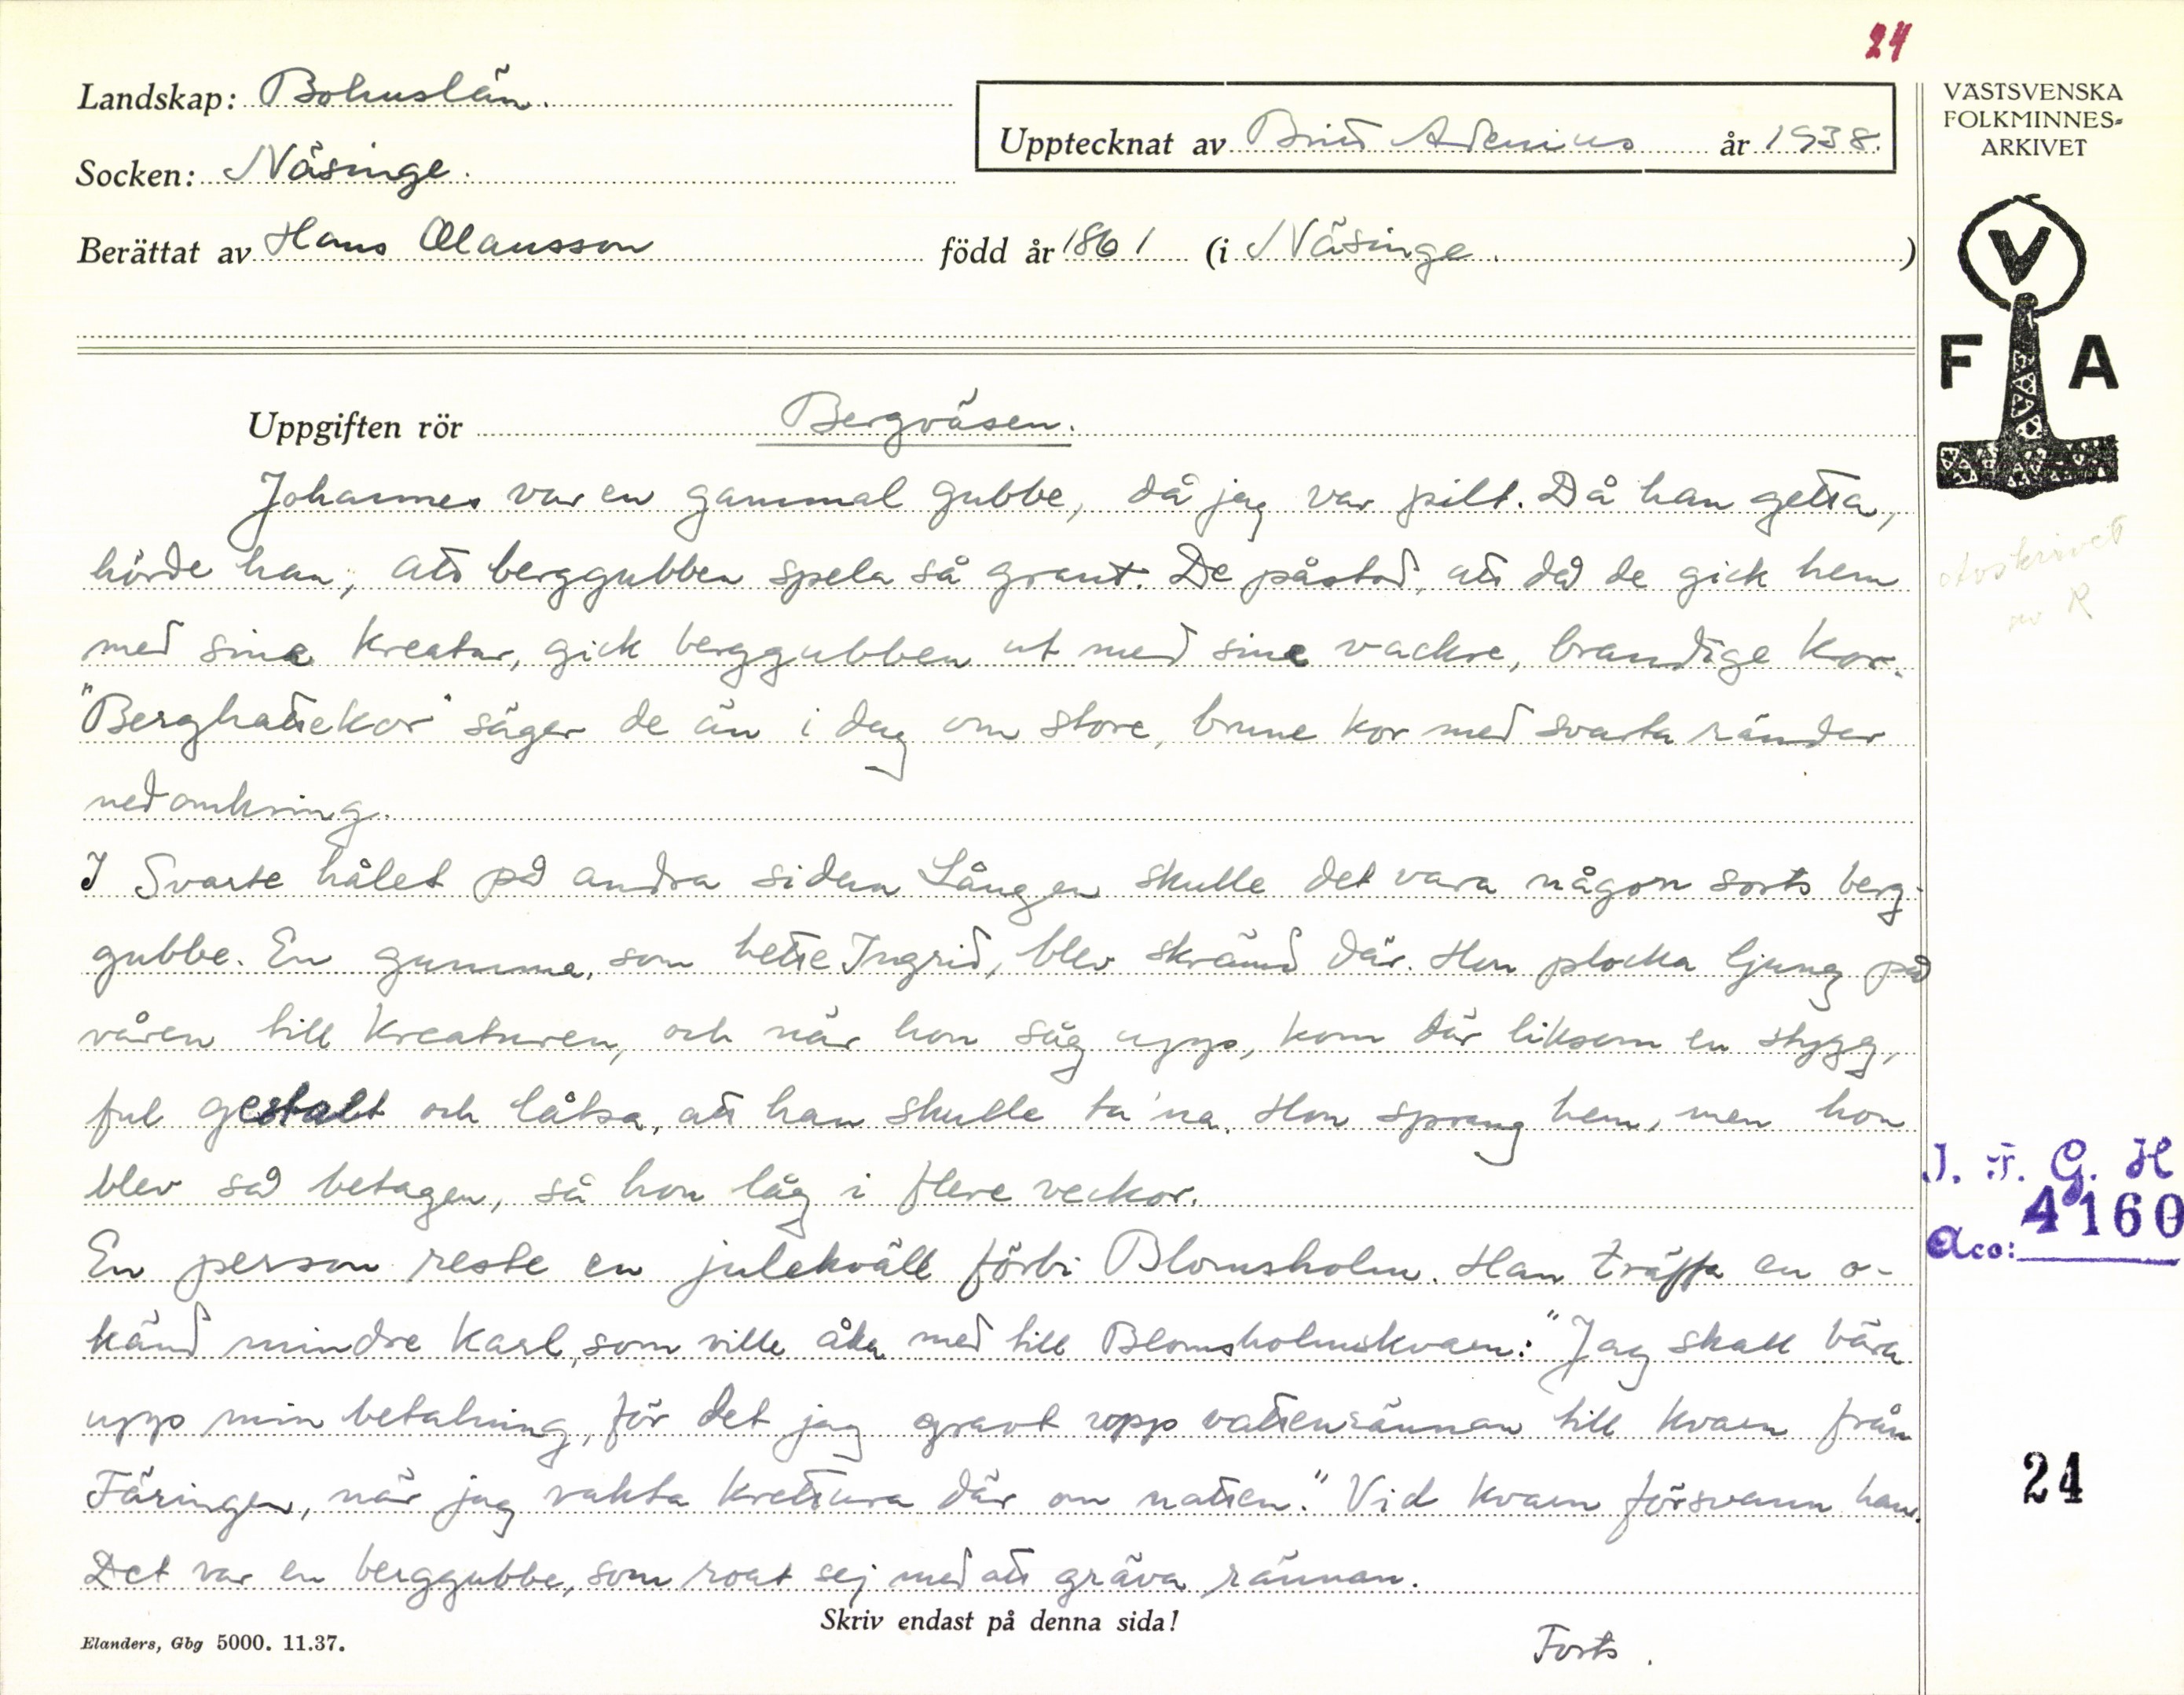 24
Landskap: Bohuslän.
Upptecknat av Brita Adenius år 1938.
Socken: Näsinge.
Berättat av Hans Olausson född år 1861 (i Näsinge.)
VÄSTSVENSKA
FOLKMINNES-
ARKIVET
V
F A
Uppgiften rör Bergväsen.
Johannes var en gammal gubbe, då jag var pilt. Då han getta,
hörde han, att berggubben spela så grant. De påstod, att då de gick hem
med sina kreatur, gick berggubben ut med sine vackre, brandige kor.
"Berghattekor" säger de än i dag om store, brune kor med svarta ränder
nedomkring.
I Svarte hålet på andra sidan Lången skulle det vara någon sorts berg-
gubbe. En gumma, som hette Ingrid, blev skrämd där. Hon plocka ljung på
våren till kreaturen, och när hon såg upp, kom där liksom en stygg,
ful gestalt och låtsa, att han skulle ta 'na. Hon sprang hem, men hon
blev så betagen, så hon låg i flere veckor.
En person reste en julekväll förbi Blomsholm. Han träffa en o-
känd mindre karl, som ville åka med till Blomsholmskvarn: "Jag skall bära
upp min betalning, för det jag gravt upp vattenrännan till kvarn från
Färingen, när jag vakta krettura där om natten." Vid kvarn försvann han.
Det var en berggubbe, som roat sej med att gräva rännan.
Skriv endast på denna sida!
Elanders, Gbg 5000. 11.37.
Forts.
Avskrivet
av R
I. F. G. H
Acc: 4160
24